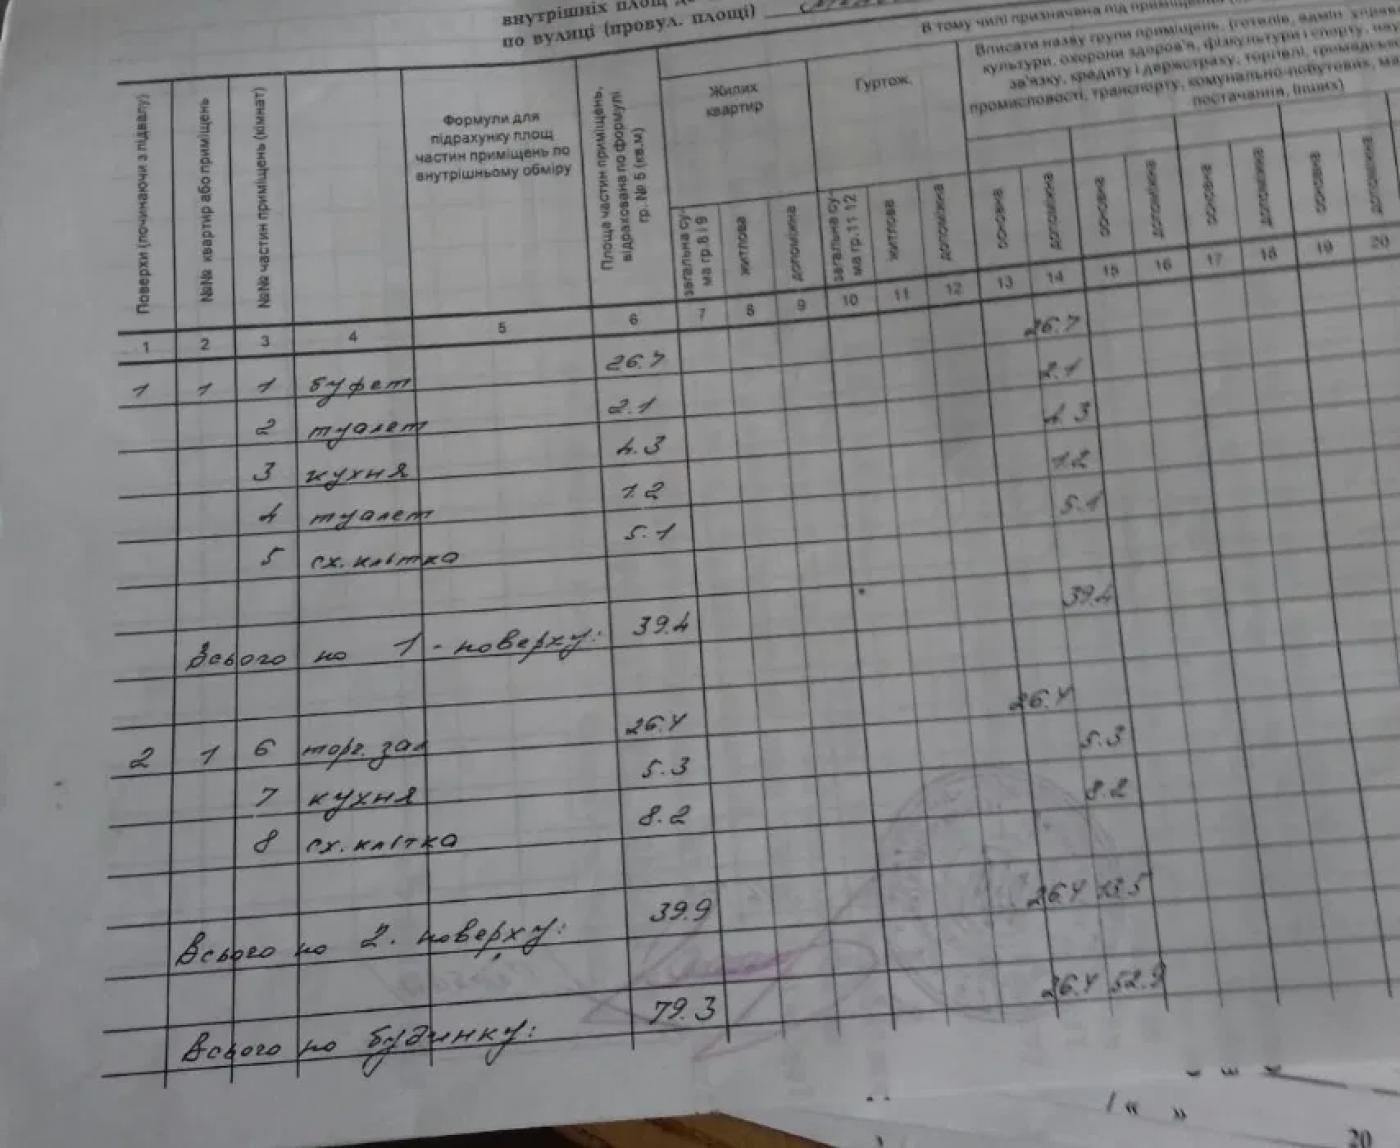 внутрішніх площ
по вулиці (провул. площі)
В тому числі призначена під приміщення
Вписати назву групи приміщень, (готелів, адмін управл
культури, охорони здоров'я, фізкультури і спорту, нау
зв'язку, кредиту і держстраху, торгівлі, громадськ
промисловості, транспорту, комунально-побутових, ма
постачання, інших)
Поверхи (починаючи з підвалу)
№№ квартир або приміщень
№№ частин приміщень (кімнат)
Формули для
підрахунку площ
частин приміщень по
внутрішньому обміру
Площа частин приміщень,
відрахована по формулі
гр. № 5 (кв.м)
Жилих
квартир
Гуртож.
загальна су-
ма гр.8 і 9
житлова
допоміжна
загальна су-
ма гр.11 12
житлова
допоміжна
основна
допоміжна
основна
допоміжна
основна
допоміжна
основна
допоміжна
1 2 3 4 5 6 7 8 9 10 11 12 13 14 15 16 17 18 19 20
1 1 1 буфет 26.7 26.7
2 туалет 2.1 2.1
3 кухня 4.3 4.3
4 туалет 1.2 1.2
5 сх. клітка 5.1 5.1
Всього по 1 - поверху: 39.4 39.4
2 1 6 торг. зал 26.4 26.4
7 кухня 5.3 5.3
8 сх. клітка 8.2 8.2
Всього по 2. поверху: 39.9 26.4 13.5
Всього по будинку: 79.3 26.4 52.9
20